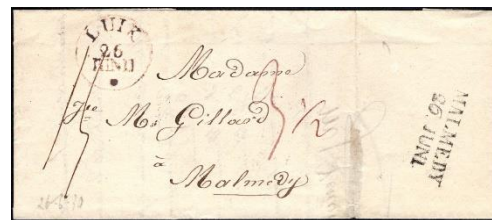 LUIK
26
JUNIJ
Madame
Mr Gillard
à
Malmedy
3 1/2
MALMEDY
26. JUNI.